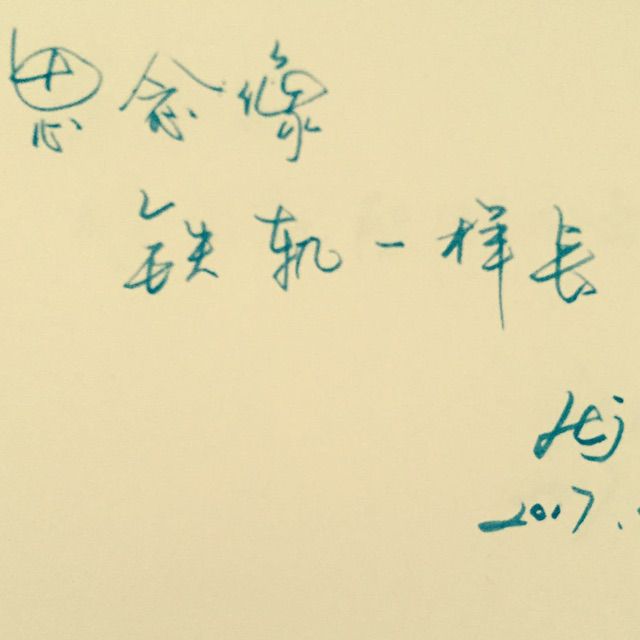 思念像
铁轨一样长
2017.